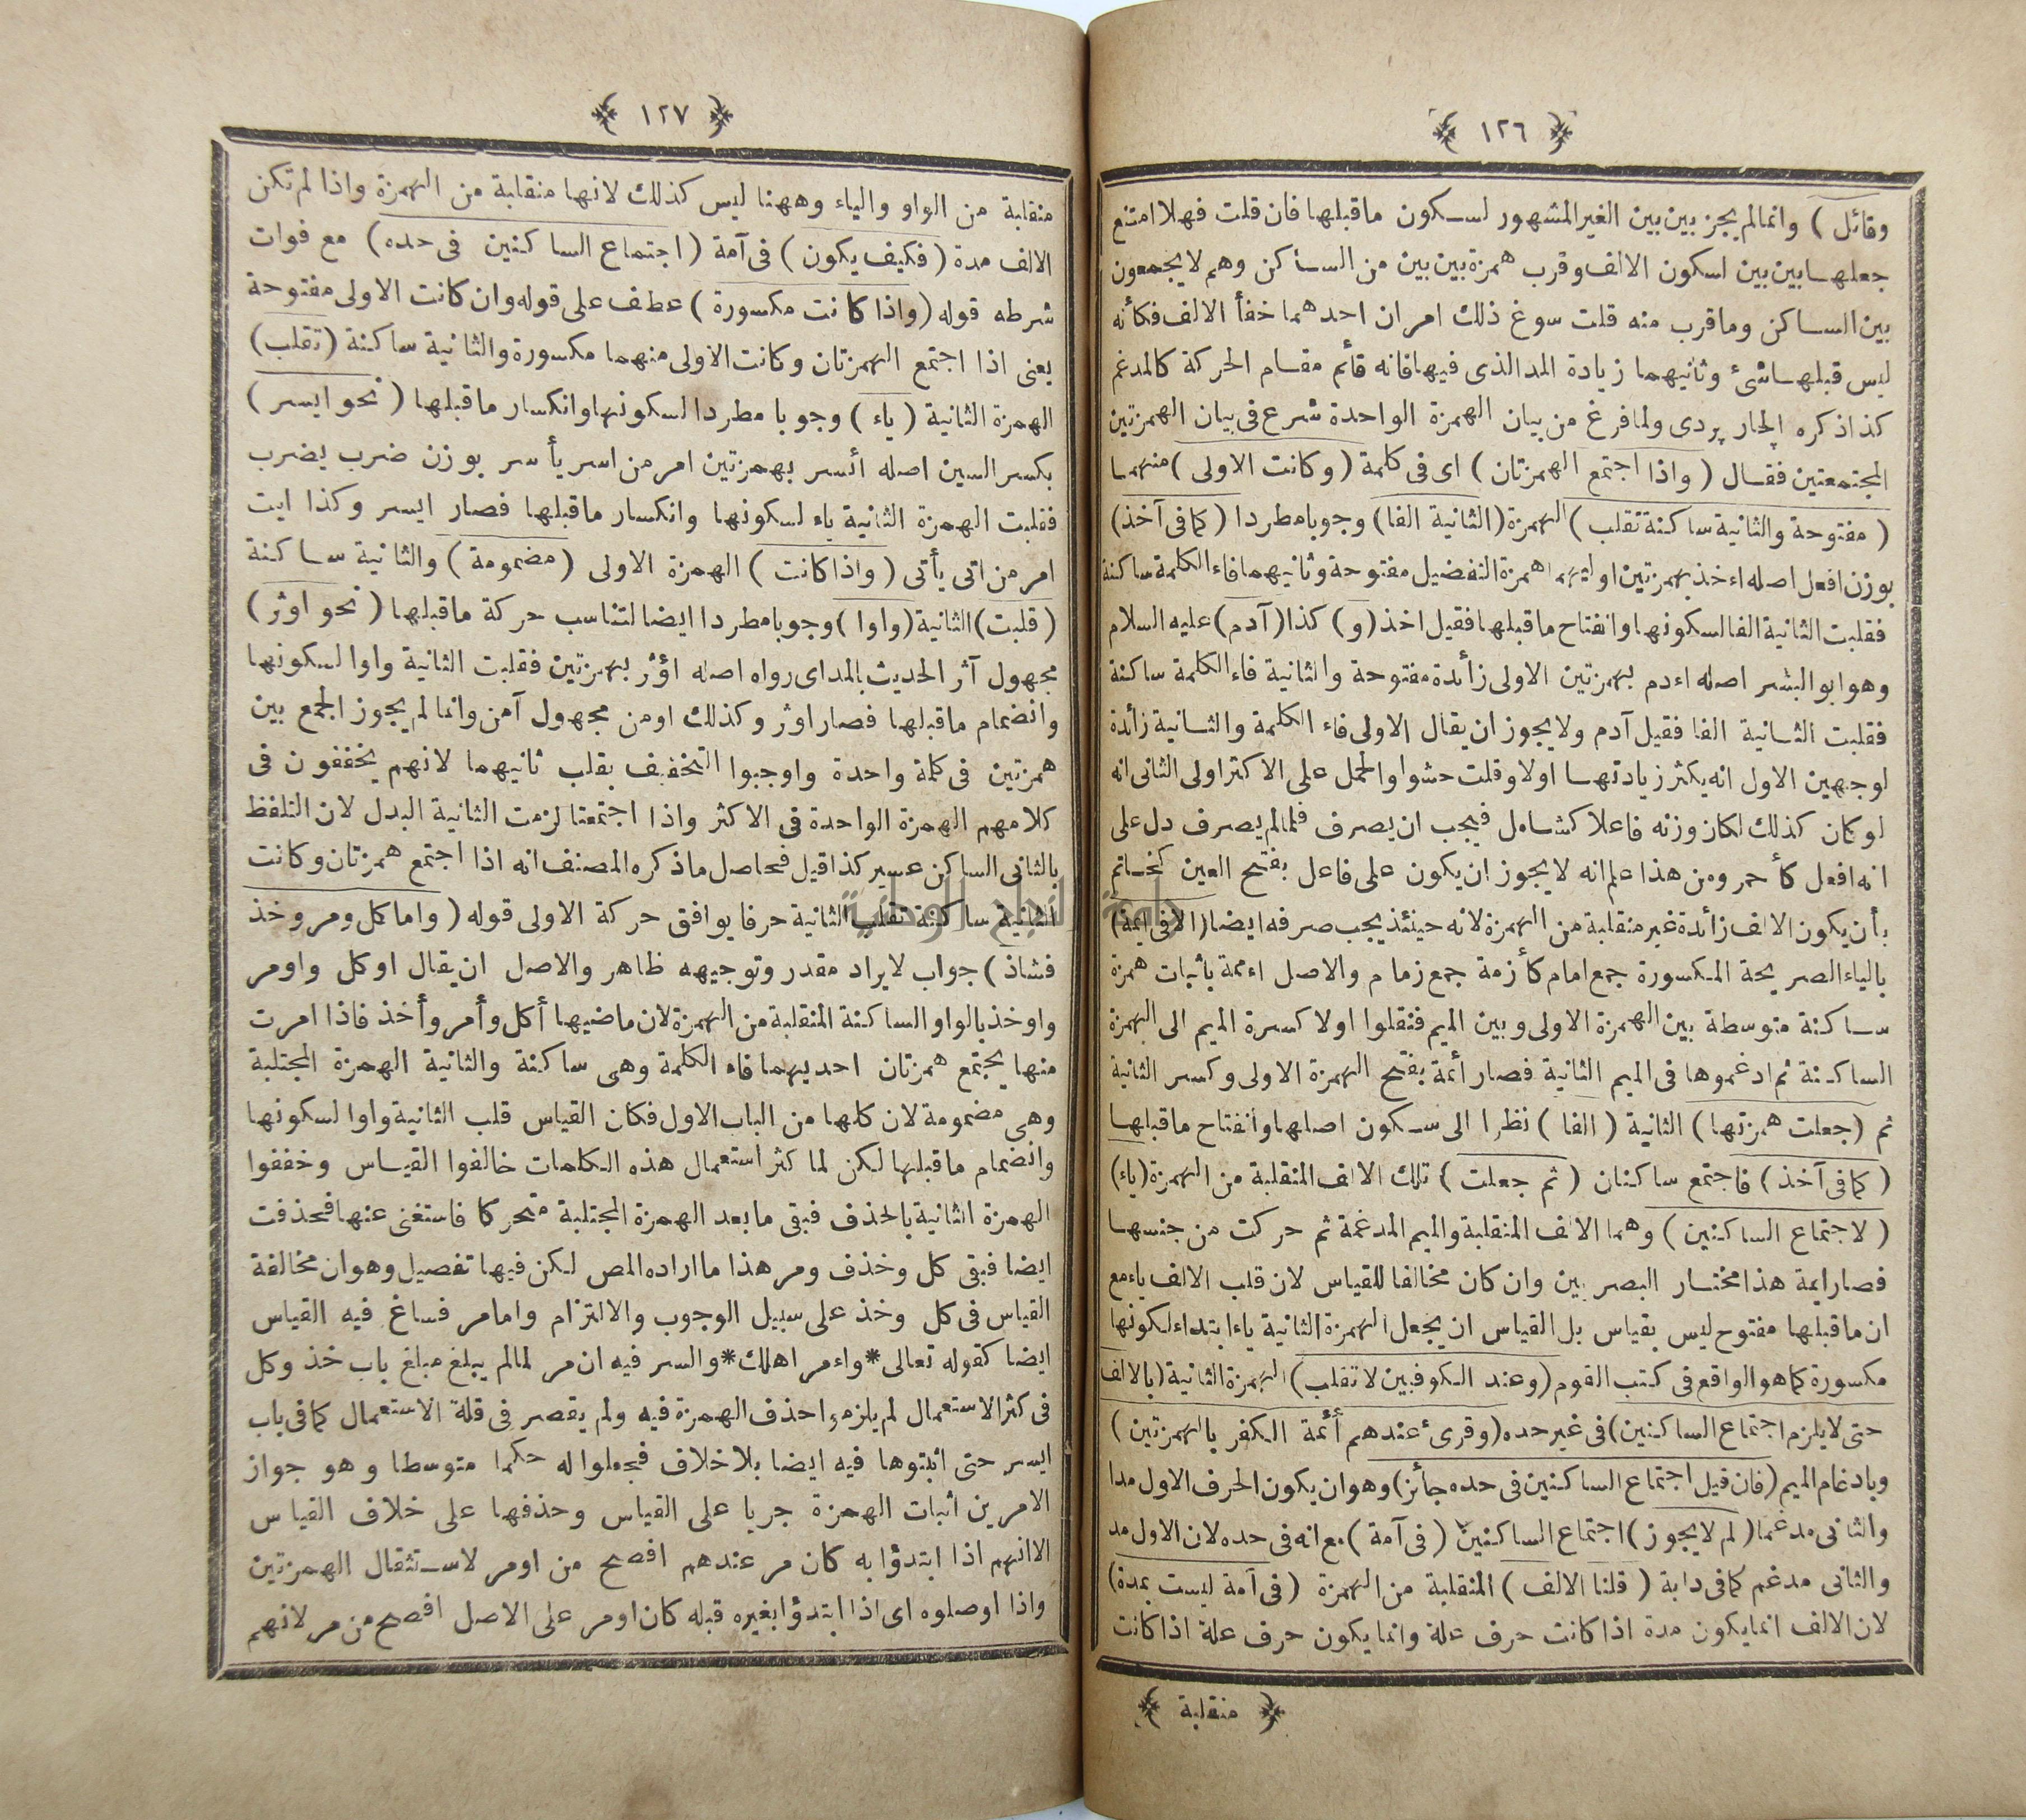 ﴿ ١٢٦ ﴾
وقائل ) وانمالم يجز بين بين الغير المشهور لسكون ماقبلها فان قلت فهلا امتنع
جعلها بين بين لسكون الالف وقرب همزة بين بين من الساكن وهم لا يجمعون
بين الساكن وماقرب منه قلت سوغ ذلك امران احدهما خفأ الالف فكأنه
ليس قبلها شئ وثانيهما زيادة المد الذى فيها فانه قائم مقام الحركة كالمدغم
كذا ذكره الچار پردى ولما فرغ من بيان الهمزة الواحدة شرع فى بيان الهمزتين
المجتمعتين فقال ( واذا اجتمع الهمزتان ) اى فى كلمة ( وكانت الاولى ) منهما
( مفتوحة والثانية ساكنة تقلب ) الهمزة ( الثانية الفا ) وجوبا مطردا ( كما فى آخذ )
بوزن افعل اصله اءخذ بهمزتين اوليهما همزة التفضيل مفتوحة وثانيهما فاء الكلمة ساكنة
فقلبت الثانية الفا لسكونها وانفتاح ماقبلها فقيل اخذ ( و ) كذا ( آدم ) عليه السلام
وهو ابو البشر اصله اءدم بهمزتين الاولى زائدة مفتوحة والثانية فاء الكلمة ساكنة
فقلبت الثانية الفا فقيل آدم ولا يجوز ان يقال الاولى فاء الكلمة والثانية زائدة
لوجهين الاول انه يكثر زيادتها اولا وقلت حشوا والحمل على الاكثر اولى الثانى انه
لو كان كذلك لكان وزنه فاعلا كشامل فيجب ان يصرف فلما لم يصرف دل على
انه افعل كأحمر ومن هذا علم انه لا يجوز ان يكون على فاعل بفتح العين كخاتم
بأن يكون الالف زائدة غير منقلبة من الهمزة لانه حينئذ يجب صرفه ايضا ( الا فى ايمة )
بالياء الصريحة المكسورة جمع امام كأزمة جمع زمام والاصل اءممة باثبات همزة
ساكنة متوسطة بين الهمزة الاولى وبين الميم فنقلوا اولا كسرة الميم الى الهمزة
الساكنة ثم ادغموها فى الميم الثانية فصار أئمة بفتح الهمزة الاولى وكسر الثانية
ثم ( جعلت همزتها ) الثانية ( الفا ) نظرا الى سكون اصلها وانفتاح ماقبلها
( كما فى آخذ ) فاجتمع ساكنان ( ثم جعلت ) تلك الالف المنقلبة من الهمزة ( ياء )
( لاجتماع الساكنين ) وهما الالف المنقلبة والميم المدغمة ثم حركت من جنسها
فصار ايمة هذا مختار البصريين وان كان مخالفا للقياس لان قلب الالف ياء مع
ان ماقبلها مفتوح ليس بقياس بل القياس ان يجعل الهمزة الثانية ياء ابتداء لكونها
مكسورة كما هو الواقع فى كتب القوم ( وعند الكوفيين لا تقلب ) الهمزة الثانية ( بالالف
حتى لا يلزم اجتماع الساكنين ) فى غير حده ( وقرئ عندهم أئمة الكفر بالهمزتين )
وبادغام الميم ( فان قيل اجتماع الساكنين فى حده جائز ) وهو ان يكون الحرف الاول مدا
والثانى مدغما ( لم لا يجوز ) اجتماع الساكنين ( فى آمة ) مع انه فى حده لان الاول مد
والثانى مدغم كما فى دابة ( قلنا الالف ) المنقلبة من الهمزة ( فى آمة ليست بمدة )
لان الالف انما يكون مدة اذا كانت حرف علة وانما يكون حرف علة اذا كانت
﴿ منقلبة ﴾
﴿ ١٢٧ ﴾
منقلبة من الواو والياء وههنا ليس كذلك لانها منقلبة من الهمزة واذا لم تكن
الالف مدة ( فكيف يكون ) فى آمة ( اجتماع الساكنين فى حده ) مع فوات
شرطه قوله ( واذا كانت مكسورة ) عطف على قوله وان كانت الاولى مفتوحة
يعنى اذا اجتمع الهمزتان وكانت الاولى منهما مكسورة والثانية ساكنة ( تقلب )
الهمزة الثانية ( ياء ) وجوبا مطردا لسكونها وانكسار ماقبلها ( نحو ايسر )
بكسر السين اصله ائسر بهمزتين امر من اسر يأسر بوزن ضرب يضرب
فقلبت الهمزة الثانية ياء لسكونها وانكسار ماقبلها فصار ايسر وكذا ايت
امر من اتى يأتى ( واذا كانت ) الهمزة الاولى ( مضمومة ) والثانية ساكنة
( قلبت ) الثانية ( واوا ) وجوبا مطردا ايضا لتناسب حركة ماقبلها ( نحو اوثر )
مجهول آثر الحديث بالمد اى رواه اصله اؤثر بهمزتين فقلبت الثانية واوا لسكونها
وانضمام ماقبلها فصار اوثر وكذلك اومن مجهول آمن وانما لم يجوز الجمع بين
همزتين فى كلمة واحدة واوجبوا التخفيف بقلب ثانيهما لانهم يخففون فى
كلامهم الهمزة الواحدة فى الاكثر واذا اجتمعتا لزمت الثانية البدل لان التلفظ
بالثانى الساكن عسير كذا قيل فحاصل ماذكره المصنف انه اذا اجتمع همزتان وكانت
الثانية ساكنة تقلب الثانية حرفا يوافق حركة الاولى قوله ( واما كل ومر وخذ
فشاذ ) جواب لايراد مقدر وتوجيهه ظاهر والاصل ان يقال اوكل واومر
واوخذ بالواو الساكنة المنقلبة من الهمزة لان ماضيها أكل وأمر وأخذ فاذا امرت
منها يجتمع همزتان احديهما فاء الكلمة وهى ساكنة والثانية الهمزة المجتلبة
وهى مضمومة لان كلها من الباب الاول فكان القياس قلب الثانية واوا لسكونها
وانضمام ماقبلها لكن لما كثر استعمال هذه الكلمات خالفوا القياس وخففوا
الهمزة الثانية بالحذف فبقى مابعد الهمزة المجتلبة متحركا فاستغنى عنها فحذفت
ايضا فبقى كل وخذ ومر هذا ما اراده المص لكن فيها تفصيل وهو ان مخالفة
القياس فى كل وخذ على سبيل الوجوب والالتزام واما مر فساغ فيه القياس
ايضا كقوله تعالى * واءمر اهلك * والسر فيه ان مر لمالم يبلغ مبلغ باب خذ وكل
فى كثر الاستعمال لم يلزموا حذف الهمزة فيه ولم يقصر فى قلة الاستعمال كما فى باب
ايسر حتى اثبتوها فيه ايضا بلا خلاف فجعلوا له حكما متوسطا وهو جواز
الامرين اثبات الهمزة جريا على القياس وحذفها على خلاف القياس
الا انهم اذا ابتدؤا به كان مر عندهم افصح من اومر لاستثقال الهمزتين
واذا اوصلوه اى اذا ابتدؤا بغيره قبله كان اومر على الاصل افصح من مر لانهم